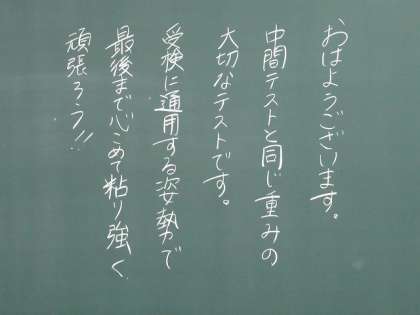 おはようございます。
中間テストと同じ重みの
大切なテストです。
受検に通用する姿勢で
最後まで心こめて粘り強く
頑張ろう!!